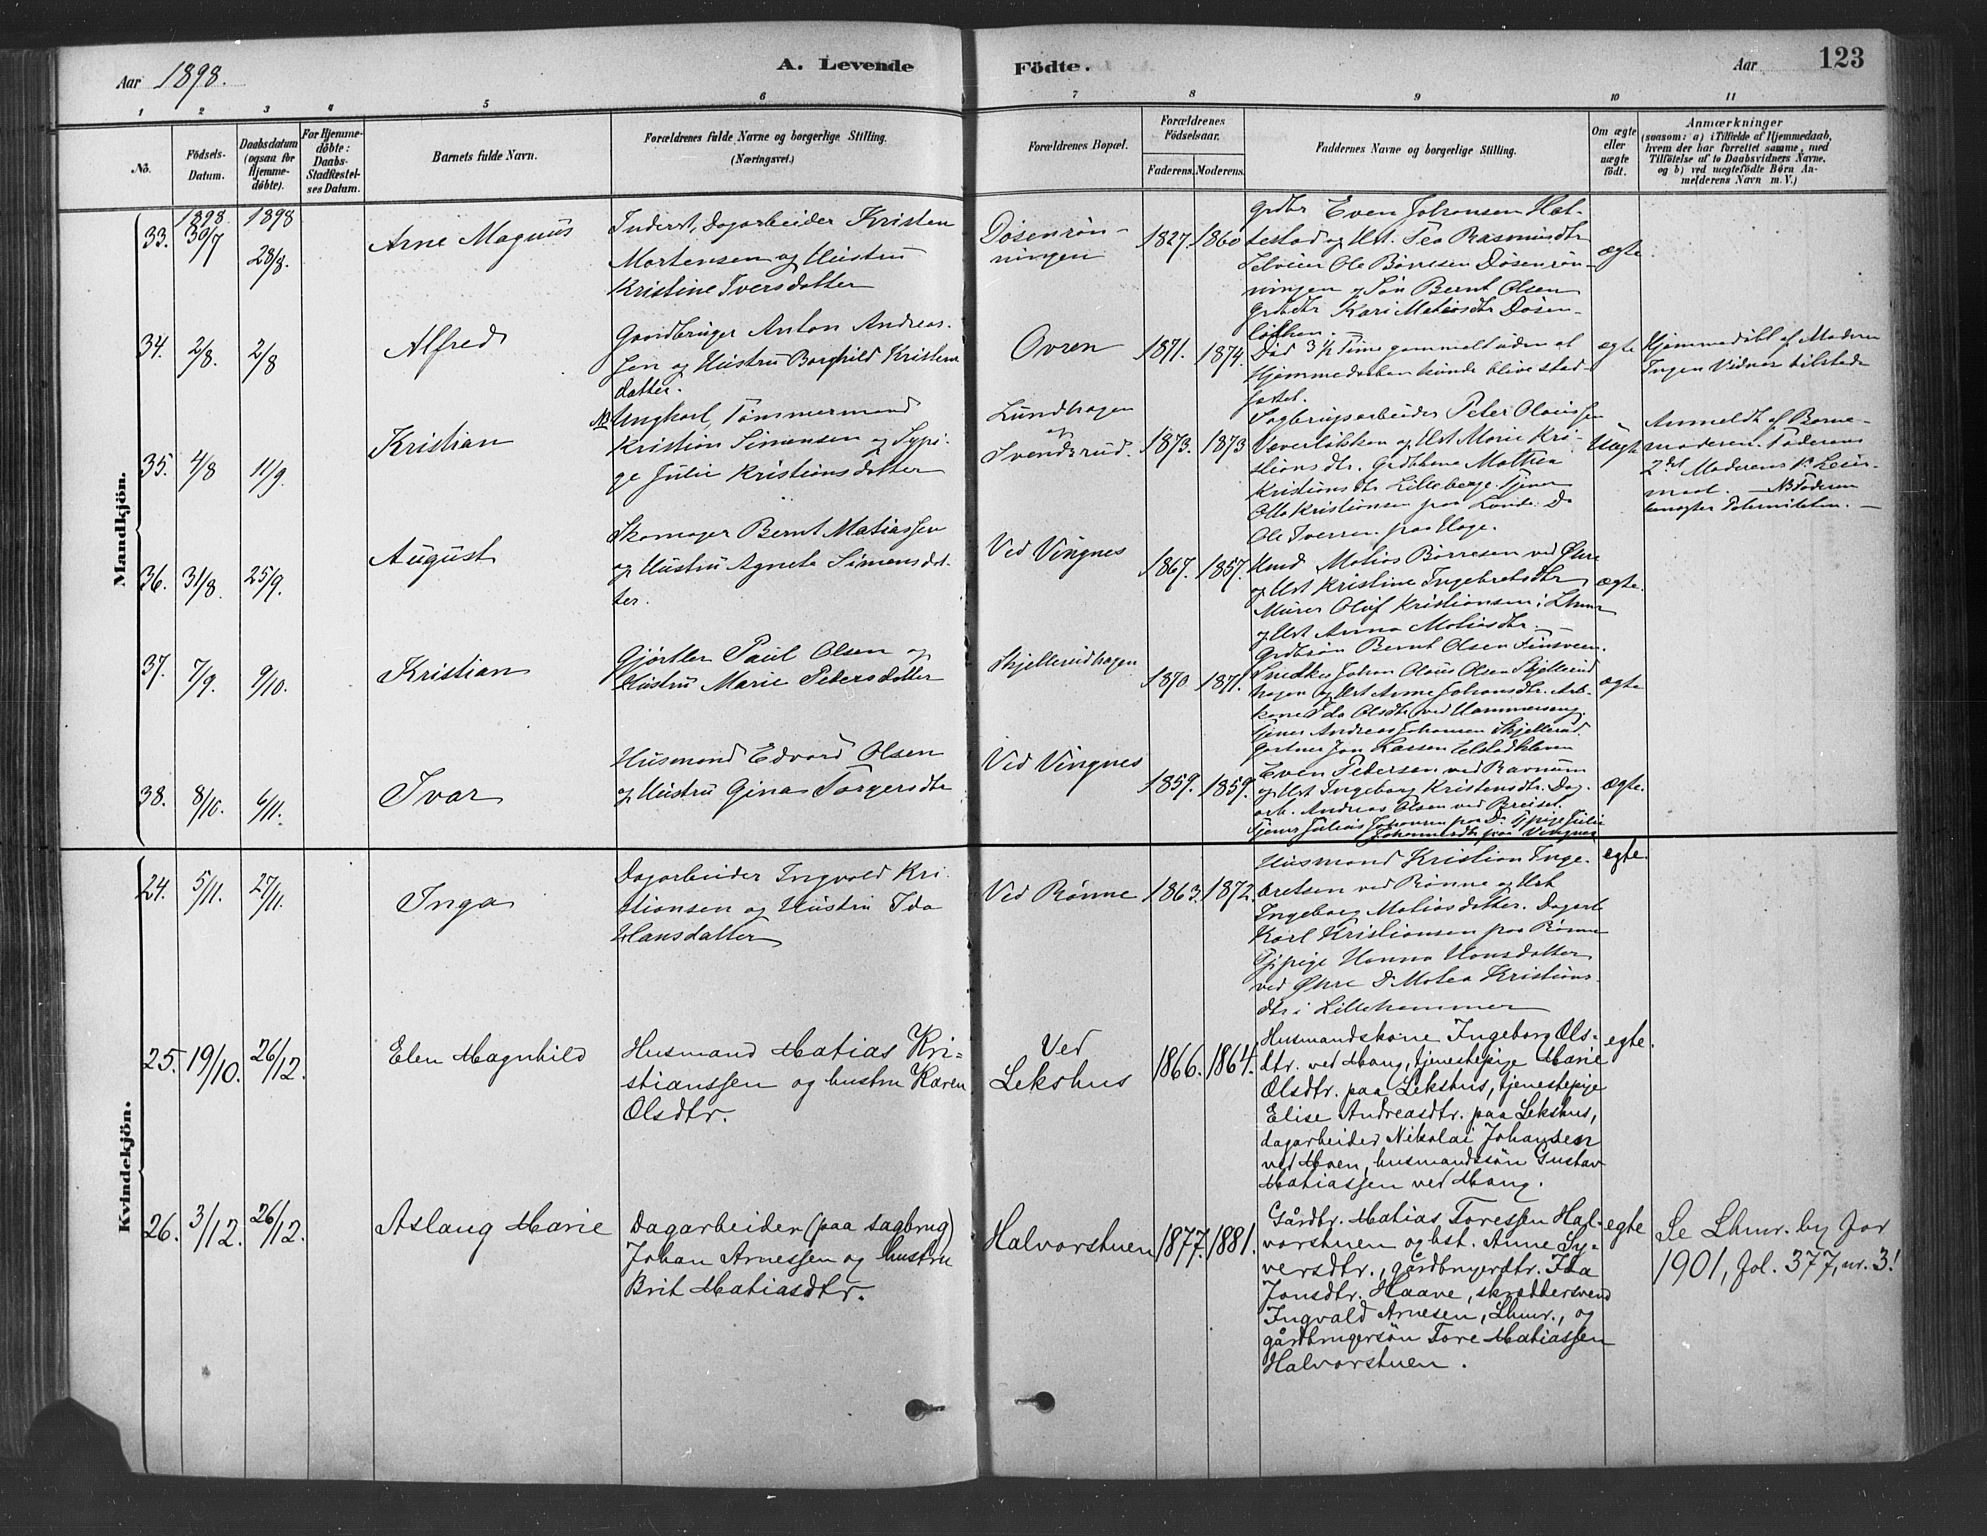 Aar 1898.
A. Levende
Födte.
Aar
123
1 2 3 4 5 6 7 8 9 10 11
No.
Födsels-
Datum.
Daabsdatum
(ogsaa for
Hjemme-
döbte).
For Hjemme-
döbte:
Daabs-
Stadfæstel-
ses Datum.
Barnets fulde Navn.
Forældrenes fulde Navne og borgerlige Stilling.
(Næringsvei.)
Forældrenes Bopæl.
Forældrenes
Födselsaar.
Faderens.
Moderens.
Faddernes Navne og borgerlige Stilling.
Om ægte
eller
uægte
födt.
Anmærkninger
(saasom: a) i Tilfælde af Hjemmedaab,
hvem der har forrettet samme, med
Tilföielse af to Daabsvidners Navne,
og b) ved uægtefödte Börn An-
melderens Navn m. V.)
Mandkjön.
33.
1898
30/7
1898
28/8.
Arne Magnus
Inderst, Dagarbeider Kristen
Mortensen og Hustru
Kristine Iversdatter
Døsenrøn-
ningen
1827. 1860
Grdbr Even Johansen Hat-
testad og Hst. Tea Rasmusdtr
Selveier Ole Børresen Døsenrøn-
ningen og Søn Bernt Olsen
Grdbdtr Kari Matiasdtr Døsen-
løkken.
ægte.
34.
2/8.
2/8
Alfred
Gaardbruger Anton Andreas-
sen og Hustru Borghild Kristens
datter.
Ovren
1871. 1874.
Død 3 1/2 Time gammelt uden at
Hjemmedaaben kunde blive stad-
fæstet.
ægte
Hjemmedøbt af Moderen
Ingen Vidner tilstede
35.
4/8
11/9.
Kristian
NB Ungkarl, Tømmermand
Kristian Simensen og Tjpi-
ge Julie Kristiansdatter
Lundhagen
og
Svendsrud.
1873. 1873
Sagbrugsarbeider Peter Olaussen
Sæverløkken og Hst Marie Kri-
stiansdtr. Grdbkone Mathea
Kristiansdtr Lilleberge Tjener
Otto Kristiansen paa Lunde. Do
Ole Iversen paa Hage.
Uægte
Anmeldt af Barne-
moderen. Faderens
2det Moderens 1ste Leier-
maal. NB Faderen
benægter Paterniteten.
36.
31/8.
25/9.
August
Skomager Bernt Matiassen
og Hustru Agnete Simensdat-
ter.
Ved Vingnes
1867. 1857.
Hmd Matias Børresen ved Øhre
og Hst Kristine Ingebretsdtr
Murer Oluf Kristiansen i Lhmr
og Hst Anna Matiasdtr.
Grdbsøn Bernt Olsen Finsveen.
ægte.
37.
7/9.
9/10.
Kristian
Gjørtler Paul Olsen og
Hustru Marie Petersdatter
Skjellerudhagen
1870. 1871.
Snedker Johan Olaus Olsen Skjellerud
hagen og Hst Anne Johansdtr. Arb-
kone Ida Olsdtr ved Hammerseng.
Tjener Andreas Johansen Skjellerud.
Gartner Jon Larsen Ulstadkleven
ægte
38.
8/10.
6/11.
Ivar
Husmand Edvard Olsen
og Hustru Gina Torgersdtr
Ved Vingnes
1859. 1859.
Even Petersen ved Ravnum
og Hst Ingeborg Kristensdtr. Dag-
arb. Andreas Olsen ved Breiset.
Tjener Julius Johansen paa Do Tjpige Julie
Johannesdtr paa Vingnes
ægte.
Kvindekjön.
24.
5/11.
27/11.
Inga
Dagarbeider Ingvald Kri-
stiansen og Hustru Ida
Hansdatter
Ved Rønne
1863. 1872.
Husmand Kristian Inge-
bretsen ved Rønne og Hst
Ingeborg Matiasdatter. Dagarb
Karl Kristiansen paa Rønne
Tjpige Hanna Hansdatter
ved Øhre Do Matea Kristians-
dtr i Lillehammer
egte.
25.
19/10.
26/12.
Elen Magnhild
Husmand Matias Kri-
stianssen og hustru Karen
Olsdtr.
Ved
Lekshus
1866. 1864.
Husmandskone Ingeborg Ols-
dtr. ved Haug, tjenestepige Marie
Olsdtr. paa Lekshus, tjenestepige
Elise Andreasdtr. paa Lekshus,
dagarbeider Nikolai Johansen
ved Moen, husmandssøn Gustav
Matiassen ved Haug.
egte.
26.
3/12.
26/12.
Aslaug Marie
Dagarbeider (paa sagbrug)
Johan Arnessen og hustru
Brit Matiasdtr.
Halvorstuen
1877. 1881.
Gårdbr. Matias Toressen Hal-
vorstuen og hst. Anne Sy-
versdtr., gårdbrugerdtr. Ida
Jonsdtr. Haave, skræddersvend
Ingvald Arnesen, Lhmr., og
gårdbrugersøn Tore Matiassen
Halvorstuen.
egte
Se Lhmr. by for
1901, fol. 377, nr. 3!